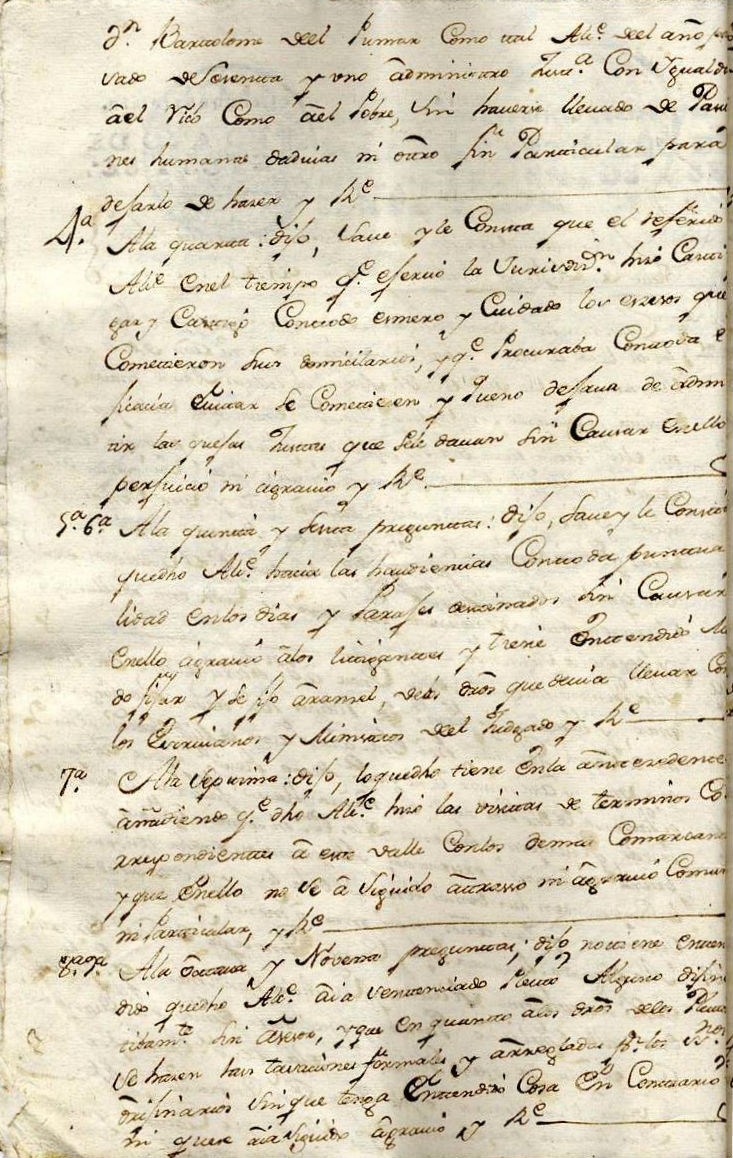 Dn. Bartolome deel Pumar Como tal Alc.e deel año pa
sado deSesenta y uno administro Just.a Con Ygualda
ael Rico Como ael Pobre, sin haverse llevado de Pasi
nes humanas dadivas ni otro fin Particular para
dejarlo de hazer y R.e
4.a Ala quarta: dijo, save y le Consta que el referido
Alc.e enel tiempo q.e ejercio la Jurisdi.on hizo Casti
gar y Castigó Contodo esmero y Cuidado los exesos que
Cometieron sus domiciliarios, y q.e Procuraba Contoda e
ficacia evitar se Cometiesen y queno dejava de admi
tir las quejas Justas que sele davan sin Causar enello
perjuicio ni agravio y R.e
5.a 6.a Ala quinta y sexta preguntas: dijo, save y le Consta
quedho Alc.e hacia las haudiencias Contoda puntua
lidad enlos dias y Parajes destinados sin Causar
enello agravio alos litigantes y tiene entendido
do fijar y se fijo aranzel, delos dros que devia llevar Con
los Escrivanos y Ministros deel Juzgado y R.e
7.a Ala septima: dijo, loquedho tiene enla antecedente
añadiendo q.e dho Alc.e hizo las visitas de terminos Co
rrespondientes a este valle Conlos demas Comarcano
y que enello no se a seguido atrasso ni agravio Comun
ni Particular, y R.e
8.a 9.a Ala octava y Novena preguntas; dijo notiene enten
dido quedho Alc.e aia sentenciado Pleito Alguno difini
tibam.te sin Asesor, y que en quanto alos dros delos Pleitos
se hazen tasaciones formales y arregladas p.r los
ordinarios sin que tenga entendido Cosa en Contrario
ni quese aia seguido agravio y R.e